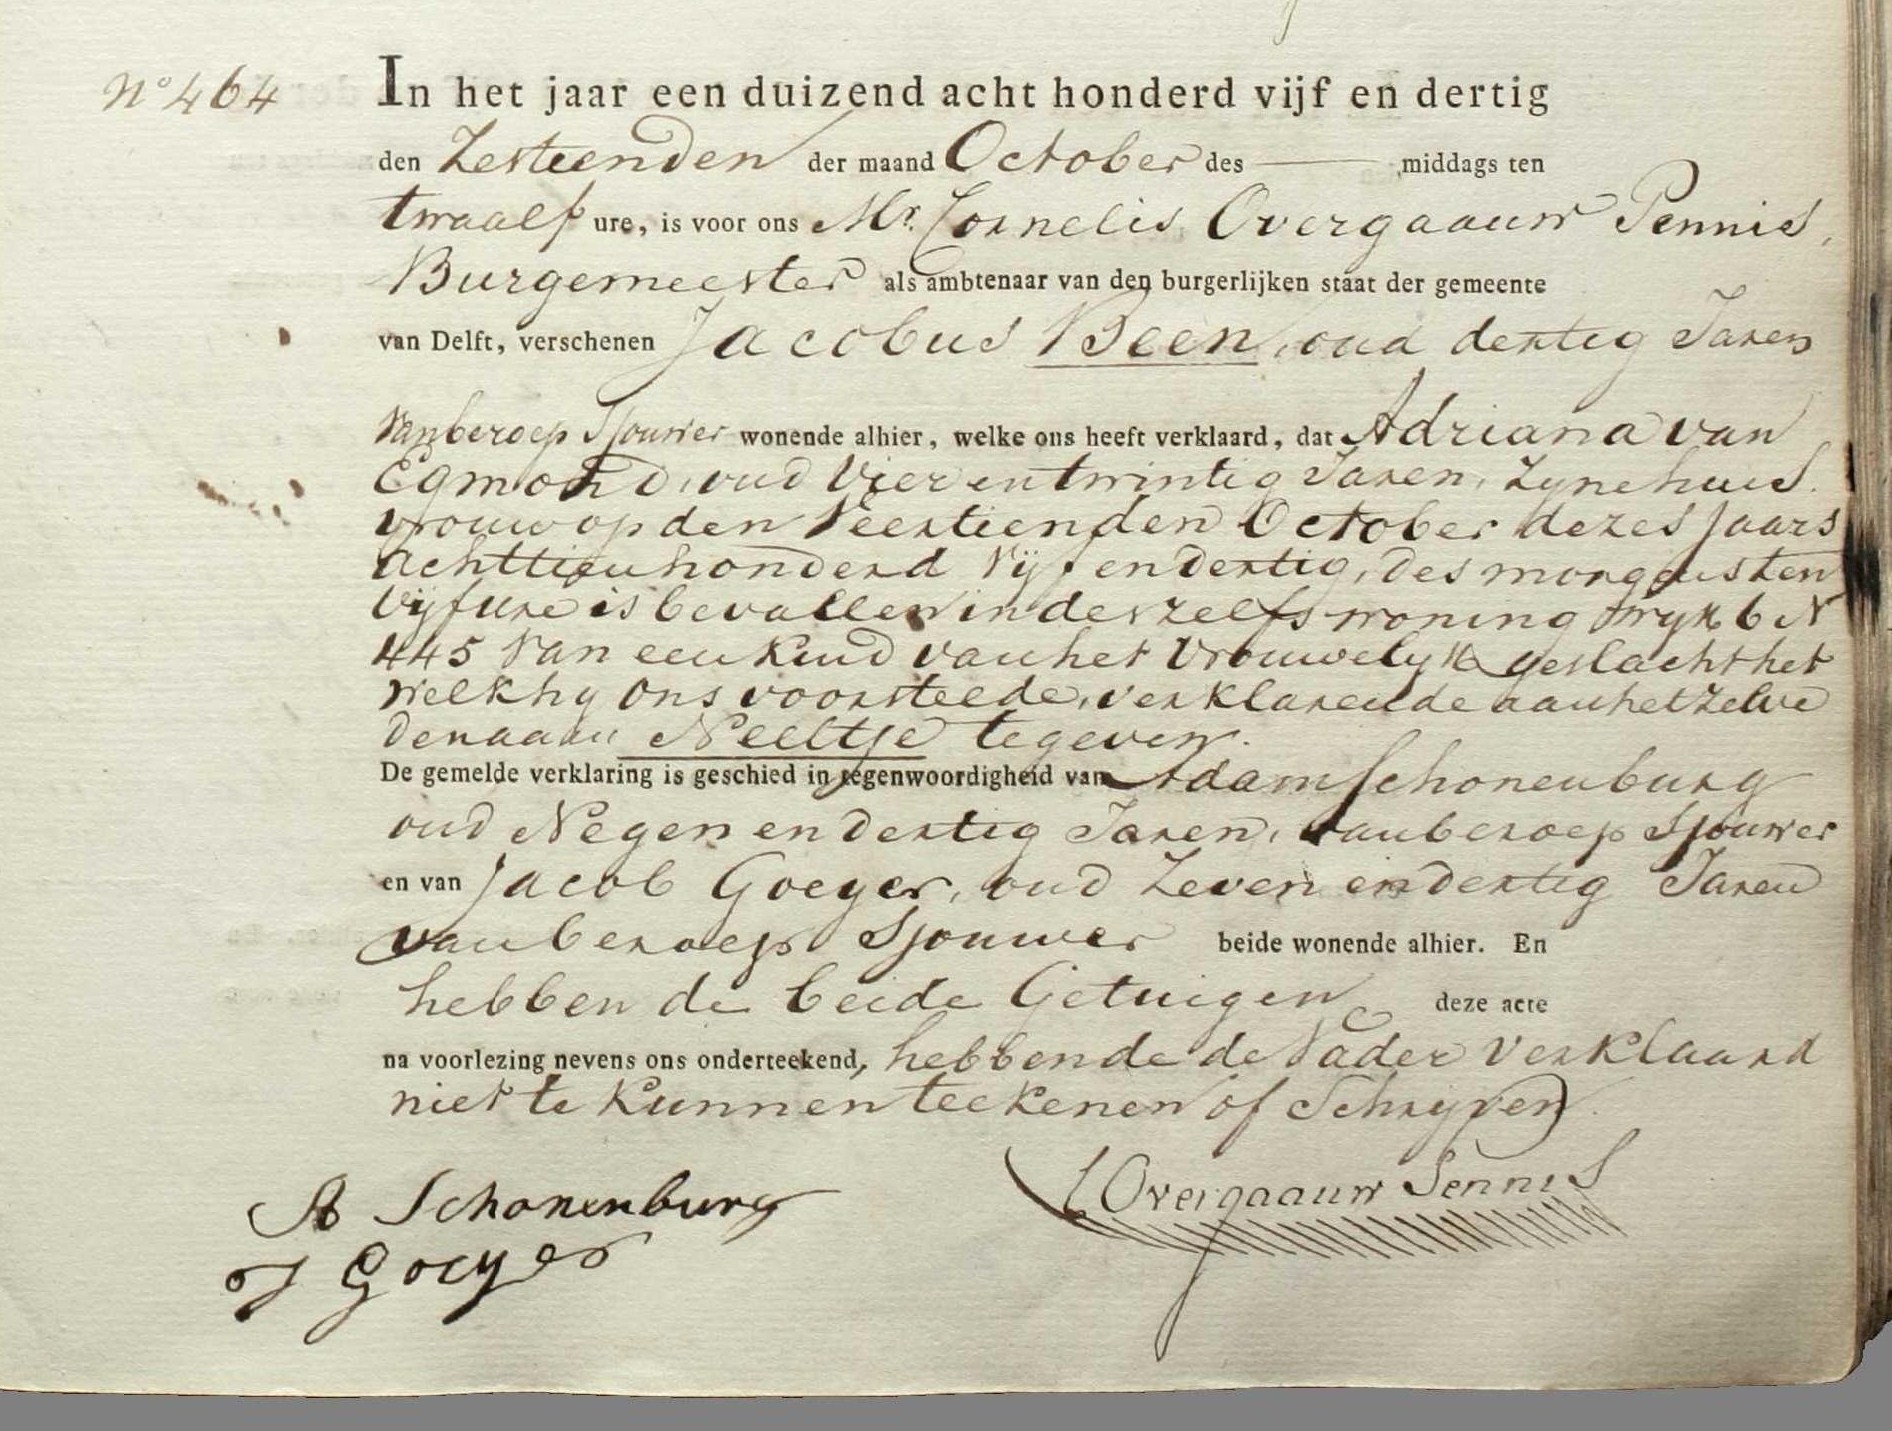 No 464
In het jaar een duizend acht honderd vijf en dertig
den Zestienden der maand October des middags ten
twaalf ure, is voor ons Mr. Cornelis Overgaauw Pennis,
Burgemeester als ambtenaar van den burgerlijken staat der gemeente
van Delft, verschenen Jacobus Been, oud dertig Jaren
van beroep Sjouwer wonende alhier, welke ons heeft verklaard, dat Adriana van
Egmond, oud Vier en twintig Jaren, zyne huis
vrouw op den Veertienden October dezes Jaars
achttien honderd Vyf en dertig, des morgens ten
vyf ure is bevallen in deszelfs woning wyk 6 N
445 van een kind van het Vrouwelyk geslacht het
welk hy ons voorstelde, verklarende aan hetzelve
de naam Neeltje te geven.
De gemelde verklaring is geschied in tegenwoordigheid van Adam Schonenburg
oud Negen en dertig Jaren, van beroep Sjouwer
en van Jacob Goeyer, oud Zeven en dertig Jaren
van beroep Sjouwer beide wonende alhier. En
hebben de beide Getuigen deze acte
na voorlezing nevens ons onderteekend, hebbende de Vader verklaard
niet te kunnen teekenen of Schryven.
A Schonenburg
C Overgaauw Pennis
J Goeyer